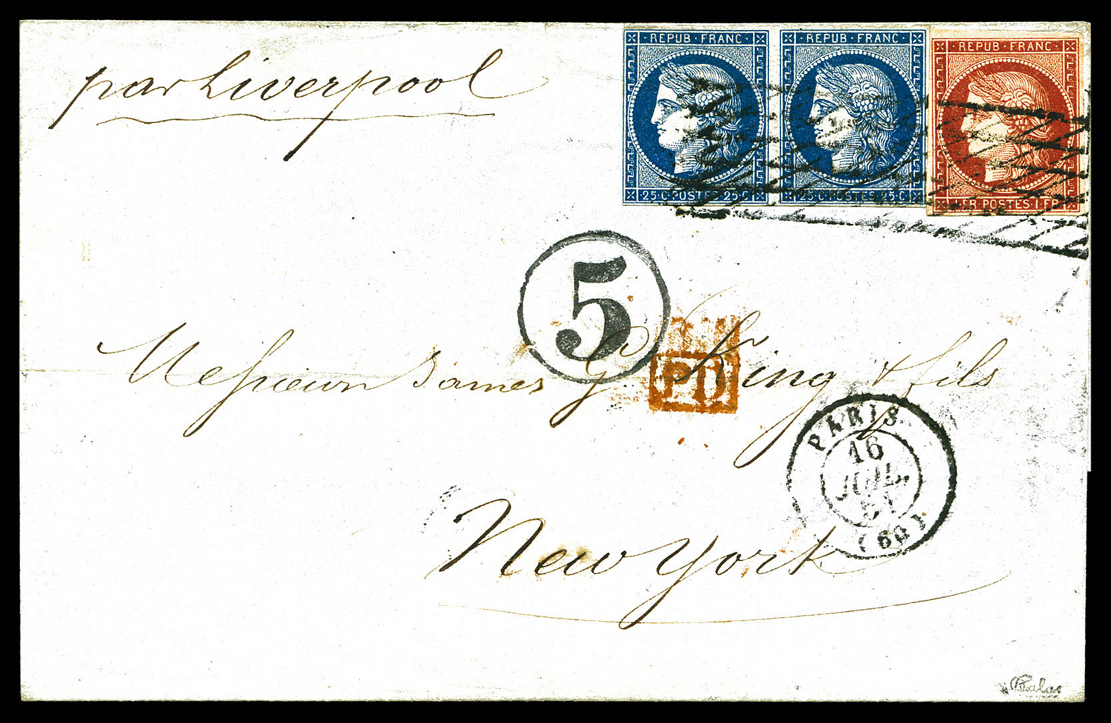 par Liverpool
REPUB·FRANC·
25·C·POSTES·25·C·
REPUB·FRANC·
25·C·POSTES·25·C·
REPUB·FRANC·
1·FR·POSTES·1·FR·
5
PD
Messieurs James G. King & fils
PARIS
16
JUIL.
51
(60)
New York
Calves